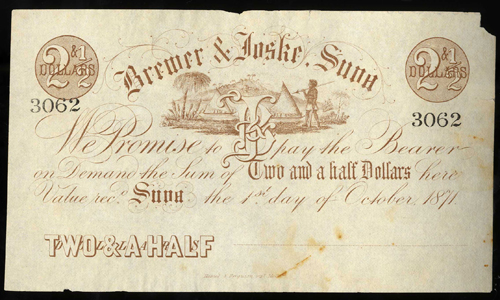 2 & 1/2 DOLLARS
2 & 1/2 DOLLARS
Brewer & Joske, Suva
3062
3062
We Promise to pay the Bearer
on Demand the Sum of Two and a half Dollars here
Value rec.d Suva the 1st day of October, 1871
TWO & A HALF